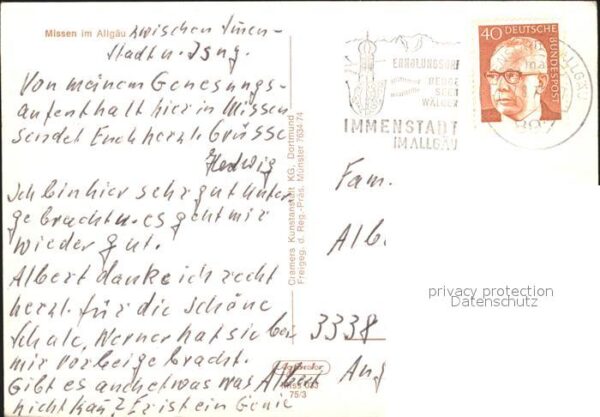 Missen im Allgäu zwischen Imen-
stadt u. Isny.
Von meinem Genesungs-
aufenthalt hier in Missen
sendet Euch herzl. Grüsse
Hedwig
Ich bin hier sehr gut unter
gebracht u. es geht mir
wieder gut.
Albert danke ich recht
herzl. für die schöne
Schale, Werner hat sie bei
mir vorbeigebracht.
Gibt es auch etwas was Albert
nicht kan? Er ist ein Genie
Cramers Kunstanstalt KG. Dortmund
Freigeg. d. Reg.-Präs. Münster 7634/74
75/3
ERHOLUNGSORT
BERGE
SEEN
WÄLDER
IMMENSTADT
IM ALLGÄU
40 DEUTSCHE
BUNDESPOST
Fam.
Alb
3338
Aug
privacy protection
Datenschutz